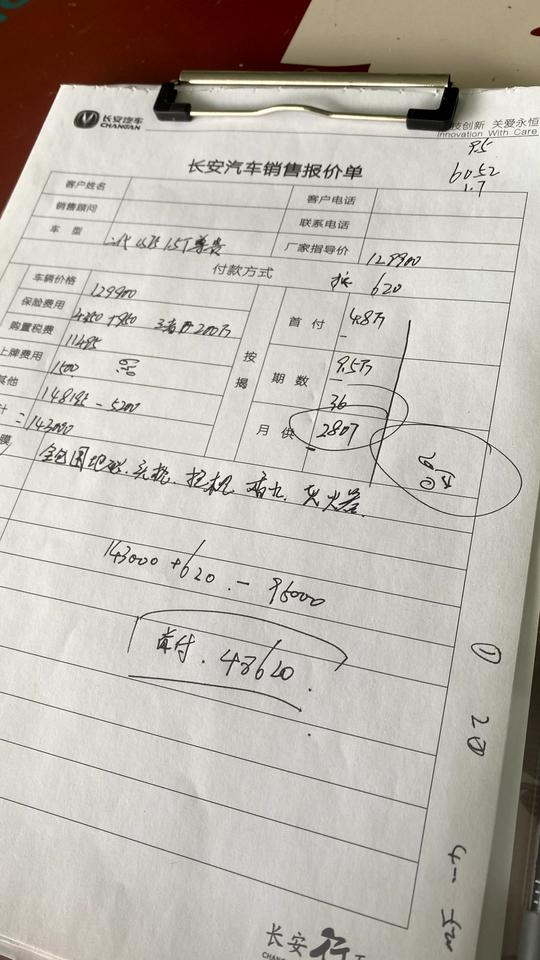 长安汽车
CHANGAN
技创新 关爱永恒
Innovation With Care
9.5
6052
1.7
长安汽车销售报价单
客户姓名
客户电话
销售顾问
联系电话
车 型
二代 1.5T尊贵
厂家指导价
129900
付款方式
620
车辆价格
129900
保险费用
4350 + 950 三者 200万
购置税费
11495
上牌费用
1500
其他
148195 - 5200
计
= 143000
膜
按揭
首 付
4.8万
期 数
9.5万
36
月 供
2807
全包围地胶. 灭火器.
143000 + 620 - 95000
首付. 48620.
① 20
长安行